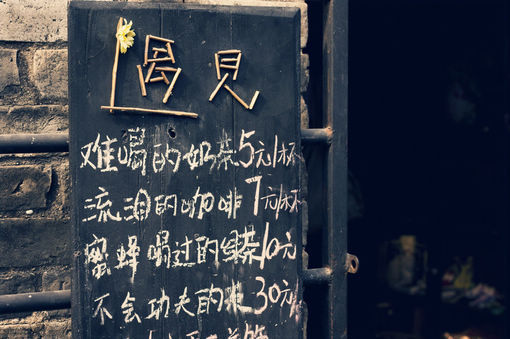 遇見
难喝的奶茶5元1杯
流泪的咖啡7元1杯
蜜蜂喝过的绿茶10元
不会功夫的 30元